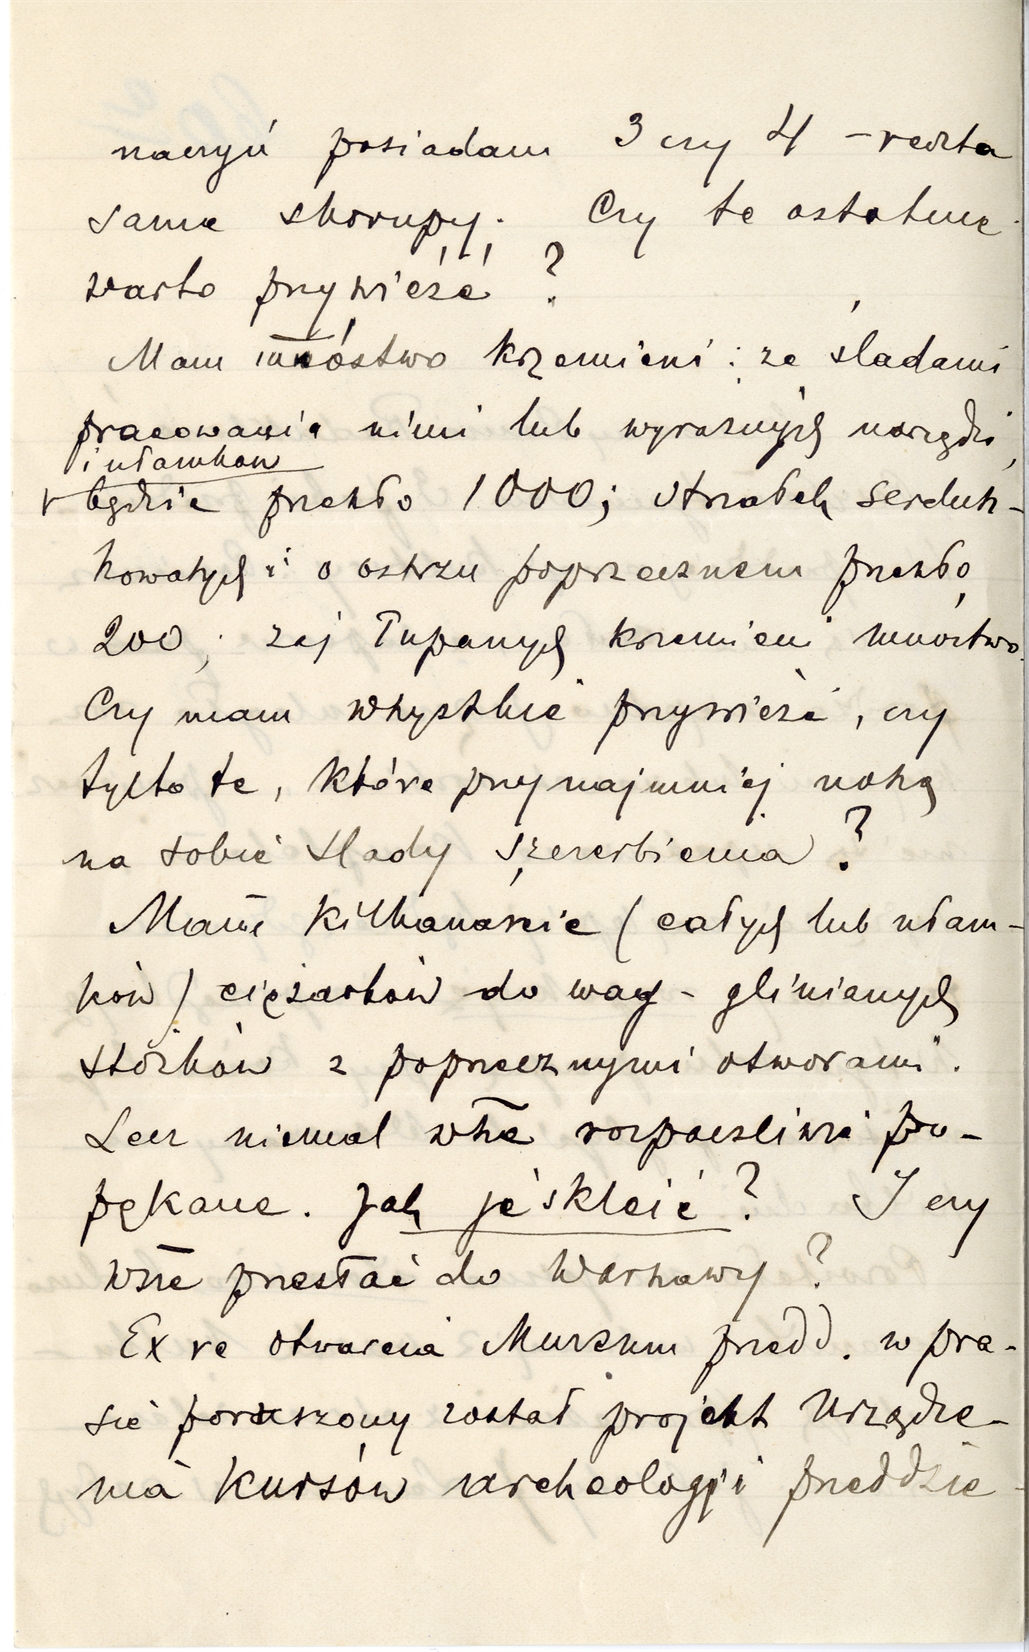 naczyń posiadam 3 czy 4 – reszta
same skorupy. Czy te ostatnie
warto przywieźć?
Mam mnóstwo krzemieni: ze śladami
pracowania nimi lub wyraźnych narzędzi
i ułamków
będzie przeszło 1000; strzałek serdusz-
kowatych i o ostrzu poprzecznem przeszło
200; zaś łupanych krzemieni mnóstwo.
Czy mam wszystkie przywieźć, czy
tylko te, które przynajmniej noszą
na sobie ślady szczerbienia?
Mam kilkanaście (całych lub ułam-
ków) ciężarków do wag – glinianych
stożków z poprzecznymi otworami.
Lecz niemal wsze rozpaczliwie po-
pękane. Jak je skleić? I czy
wsze przesłać do Warszawy?
Ex re otwarcia Muzeum przedd. w pra-
sie poruszony został projekt urządze-
nia kursów archeologji przeddzie-